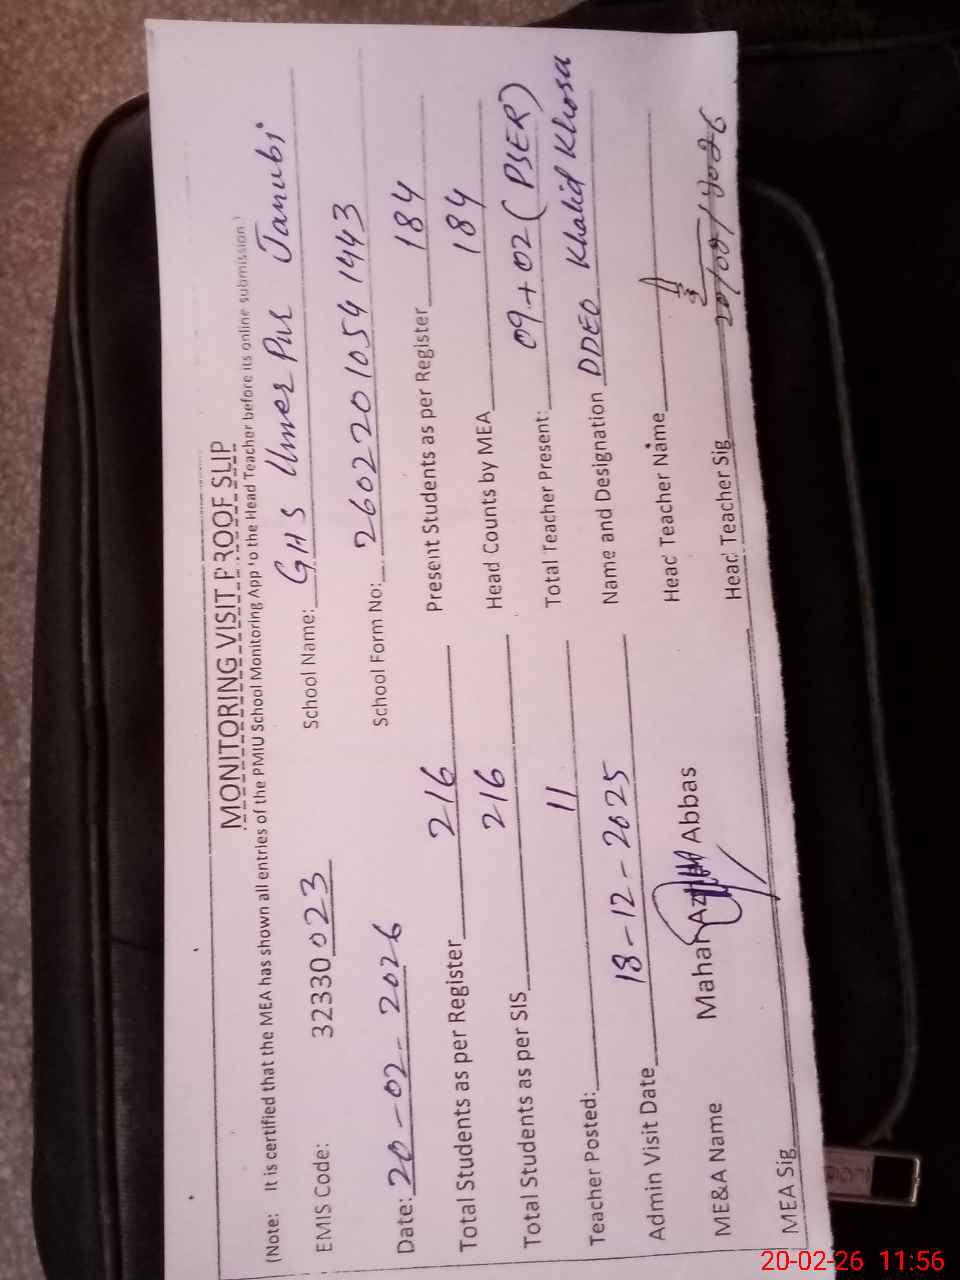 MONITORING VISIT PROOF SLIP
(Note: It is certified that the MEA has shown all entries of the PMIU School Monitoring App to the Head Teacher before its online submission.)
EMIS Code: 32330023 School Name: GHS Umer Pur Janubi
Date: 20-02-2026 School Form No: 2602201054 1443
Total Students as per Register 216 Present Students as per Register 184
Total Students as per SIS 216 Head Counts by MEA 184
Teacher Posted: 11 Total Teacher Present: 09+02 (PSER)
Admin Visit Date 18-12-2025 Name and Designation DDEO Khalid Khosa
ME&A Name Mahar Abbas Head Teacher Name
MEA Sig Head Teacher Sig
20-02-26 11:56